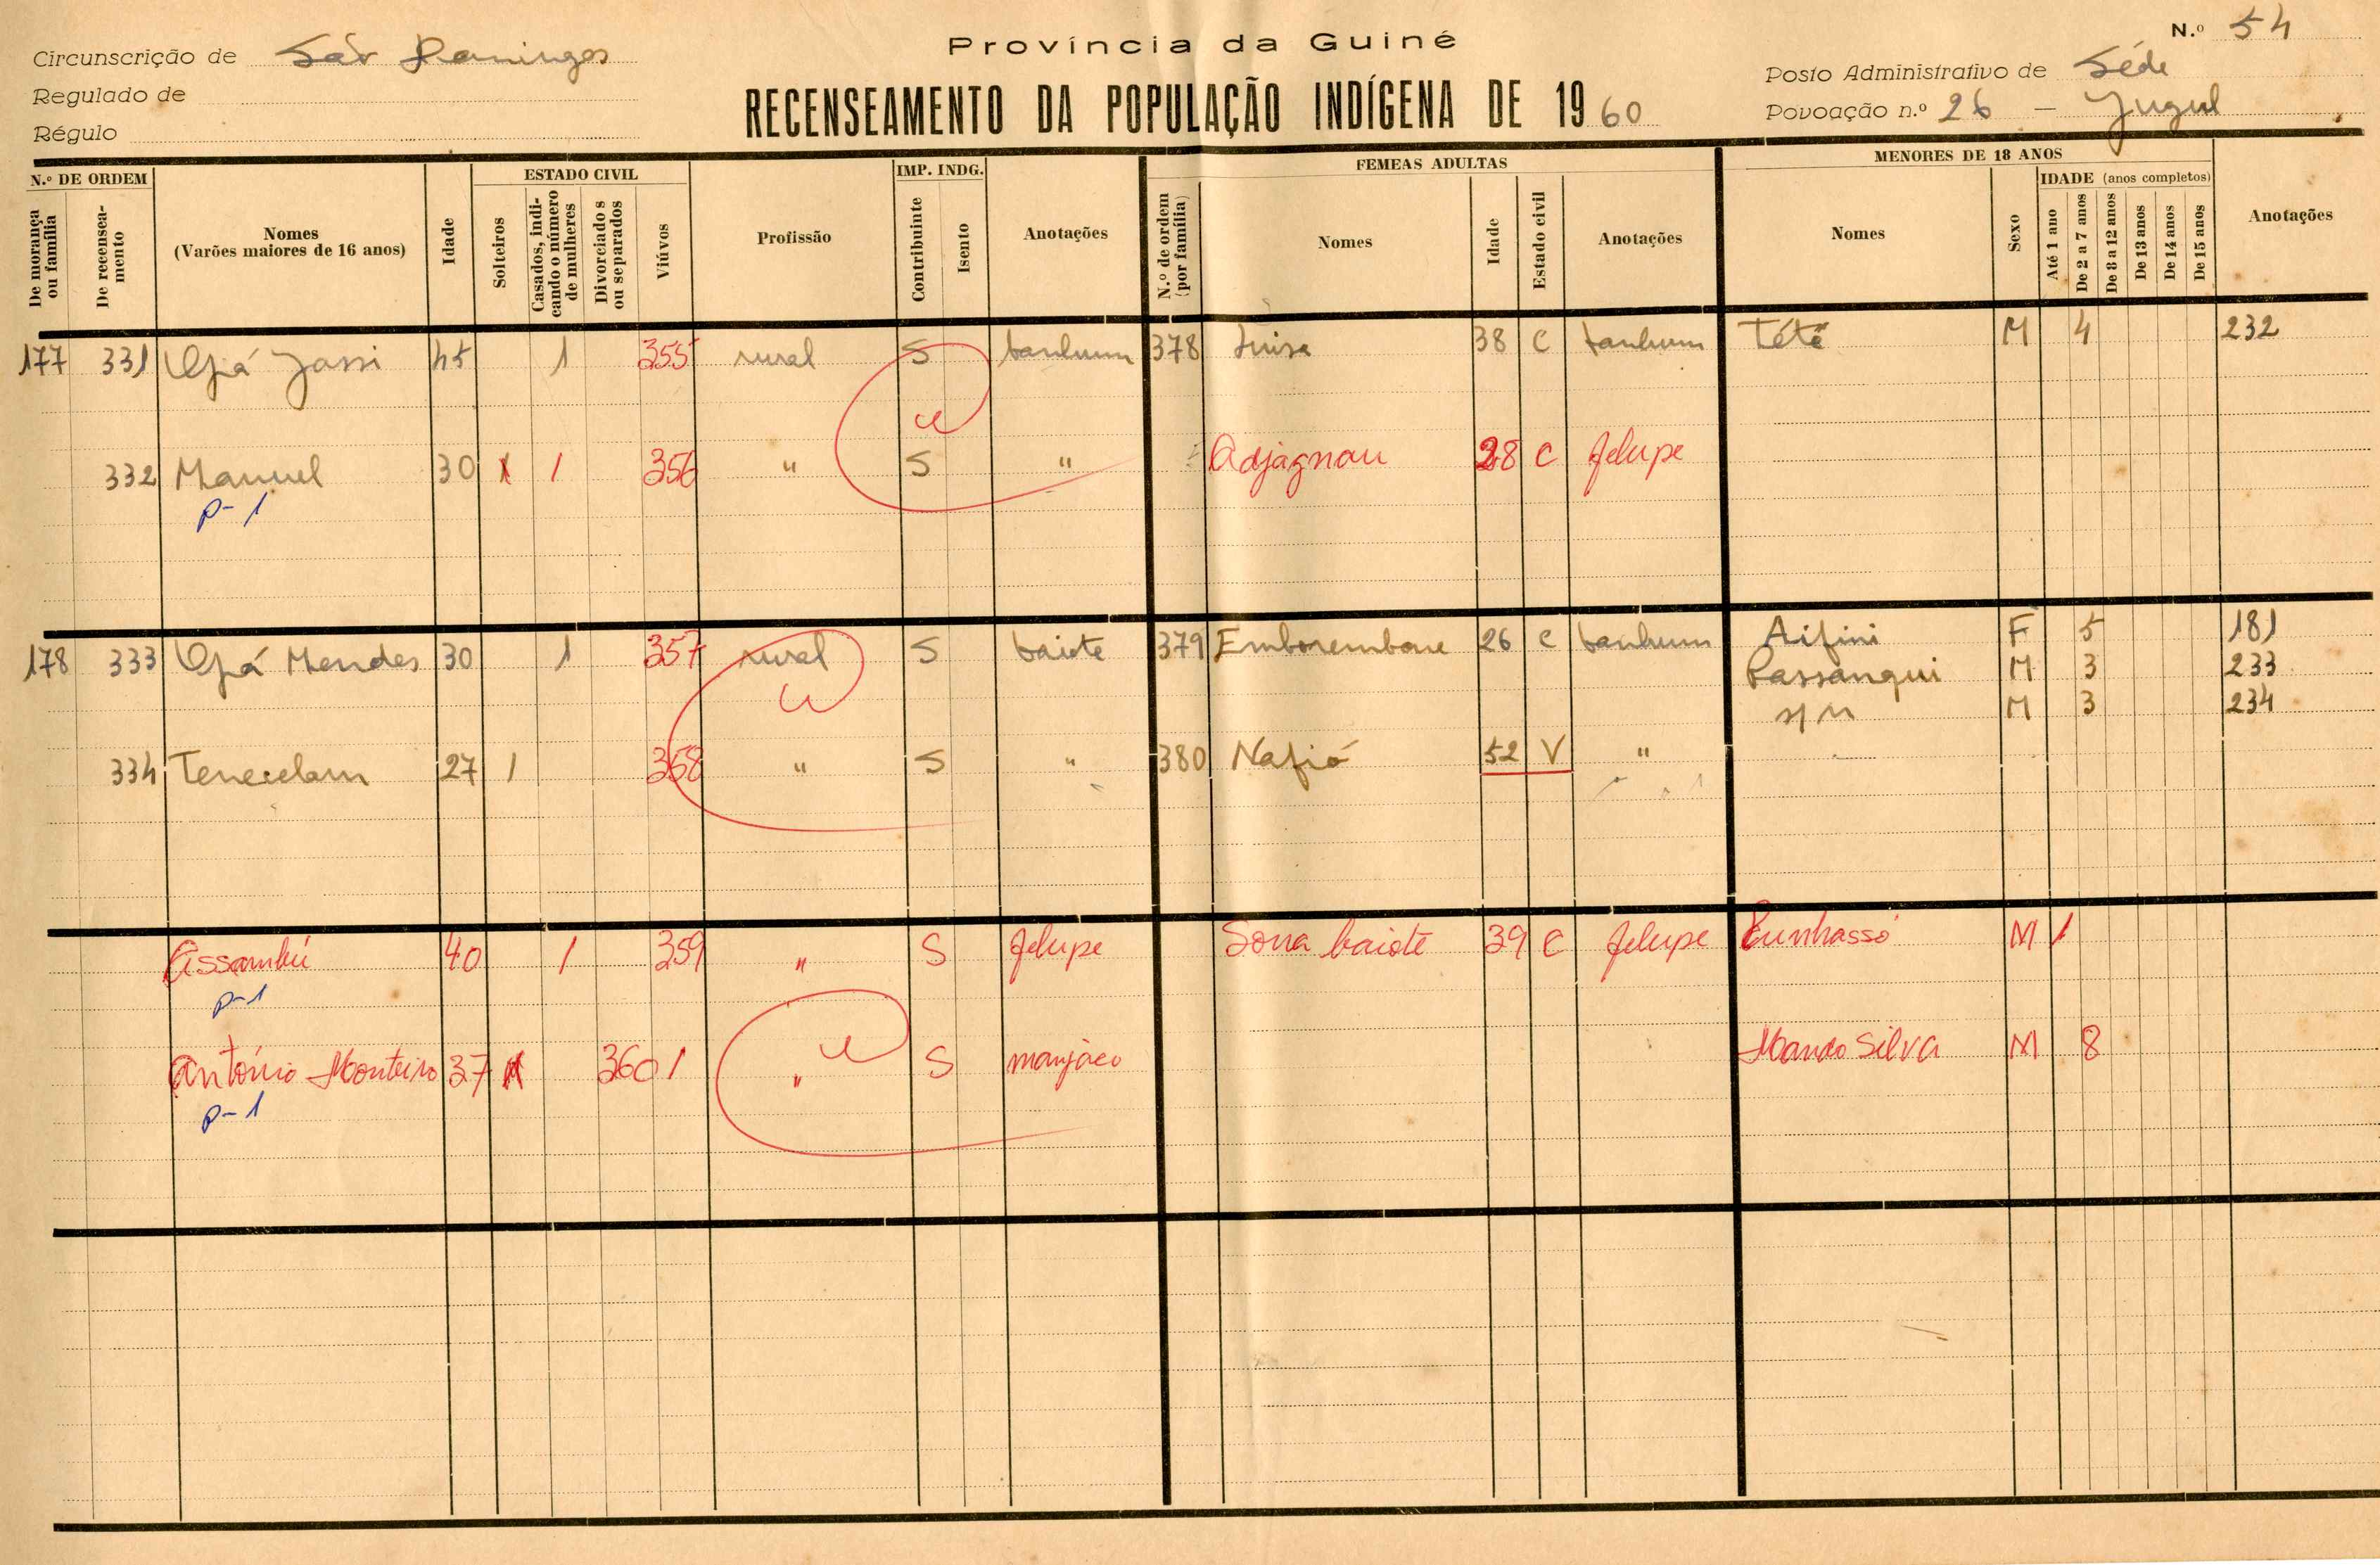 Província da Guiné
N.º 54
Circunscrição de São Domingos
Posto Administrativo de Séde
Regulado de
RECENSEAMENTO DA POPULAÇÃO INDÍGENA DE 1960
Povoação n.º 26 — Jugul
Régulo
N.º DE ORDEM
De morança ou família
De recenseamento
Nomes
(Varões maiores de 16 anos)
Idade
ESTADO CIVIL
Solteiros
Casados, indicando o número de mulheres
Divorciados ou separados
Viúvos
Profissão
IMP. INDG.
Contribuinte
Isento
Anotações
FEMEAS ADULTAS
N.º de ordem (por família)
Nomes
Idade
Estado civil
Anotações
MENORES DE 18 ANOS
Nomes
Sexo
IDADE (anos completos)
Até 1 ano
De 2 a 7 anos
De 8 a 12 anos
De 13 anos
De 14 anos
De 15 anos
Anotações
177 331 Jassi 45 1 355 rural S banhum 378 Luisa 38 C banhum Tété M 4 232
332 Manuel 30 1 356 " S " Adjagnau 28 C felupe
p-1
178 333 Mendes 30 1 357 rural S baiote 379 Emborembone 26 C banhum Aifini F 5 181
Passanqui M 3 233
s/n M 3 234
334 27 1 358 " S " 380 Nafió 52 V "
Assambú 40 1 359 " S felupe Sona baiote 39 C felupe Cunhassó M 1
p-1
António Monteiro 37 360 1 " S manjaco Mando Silva M 8
p-1